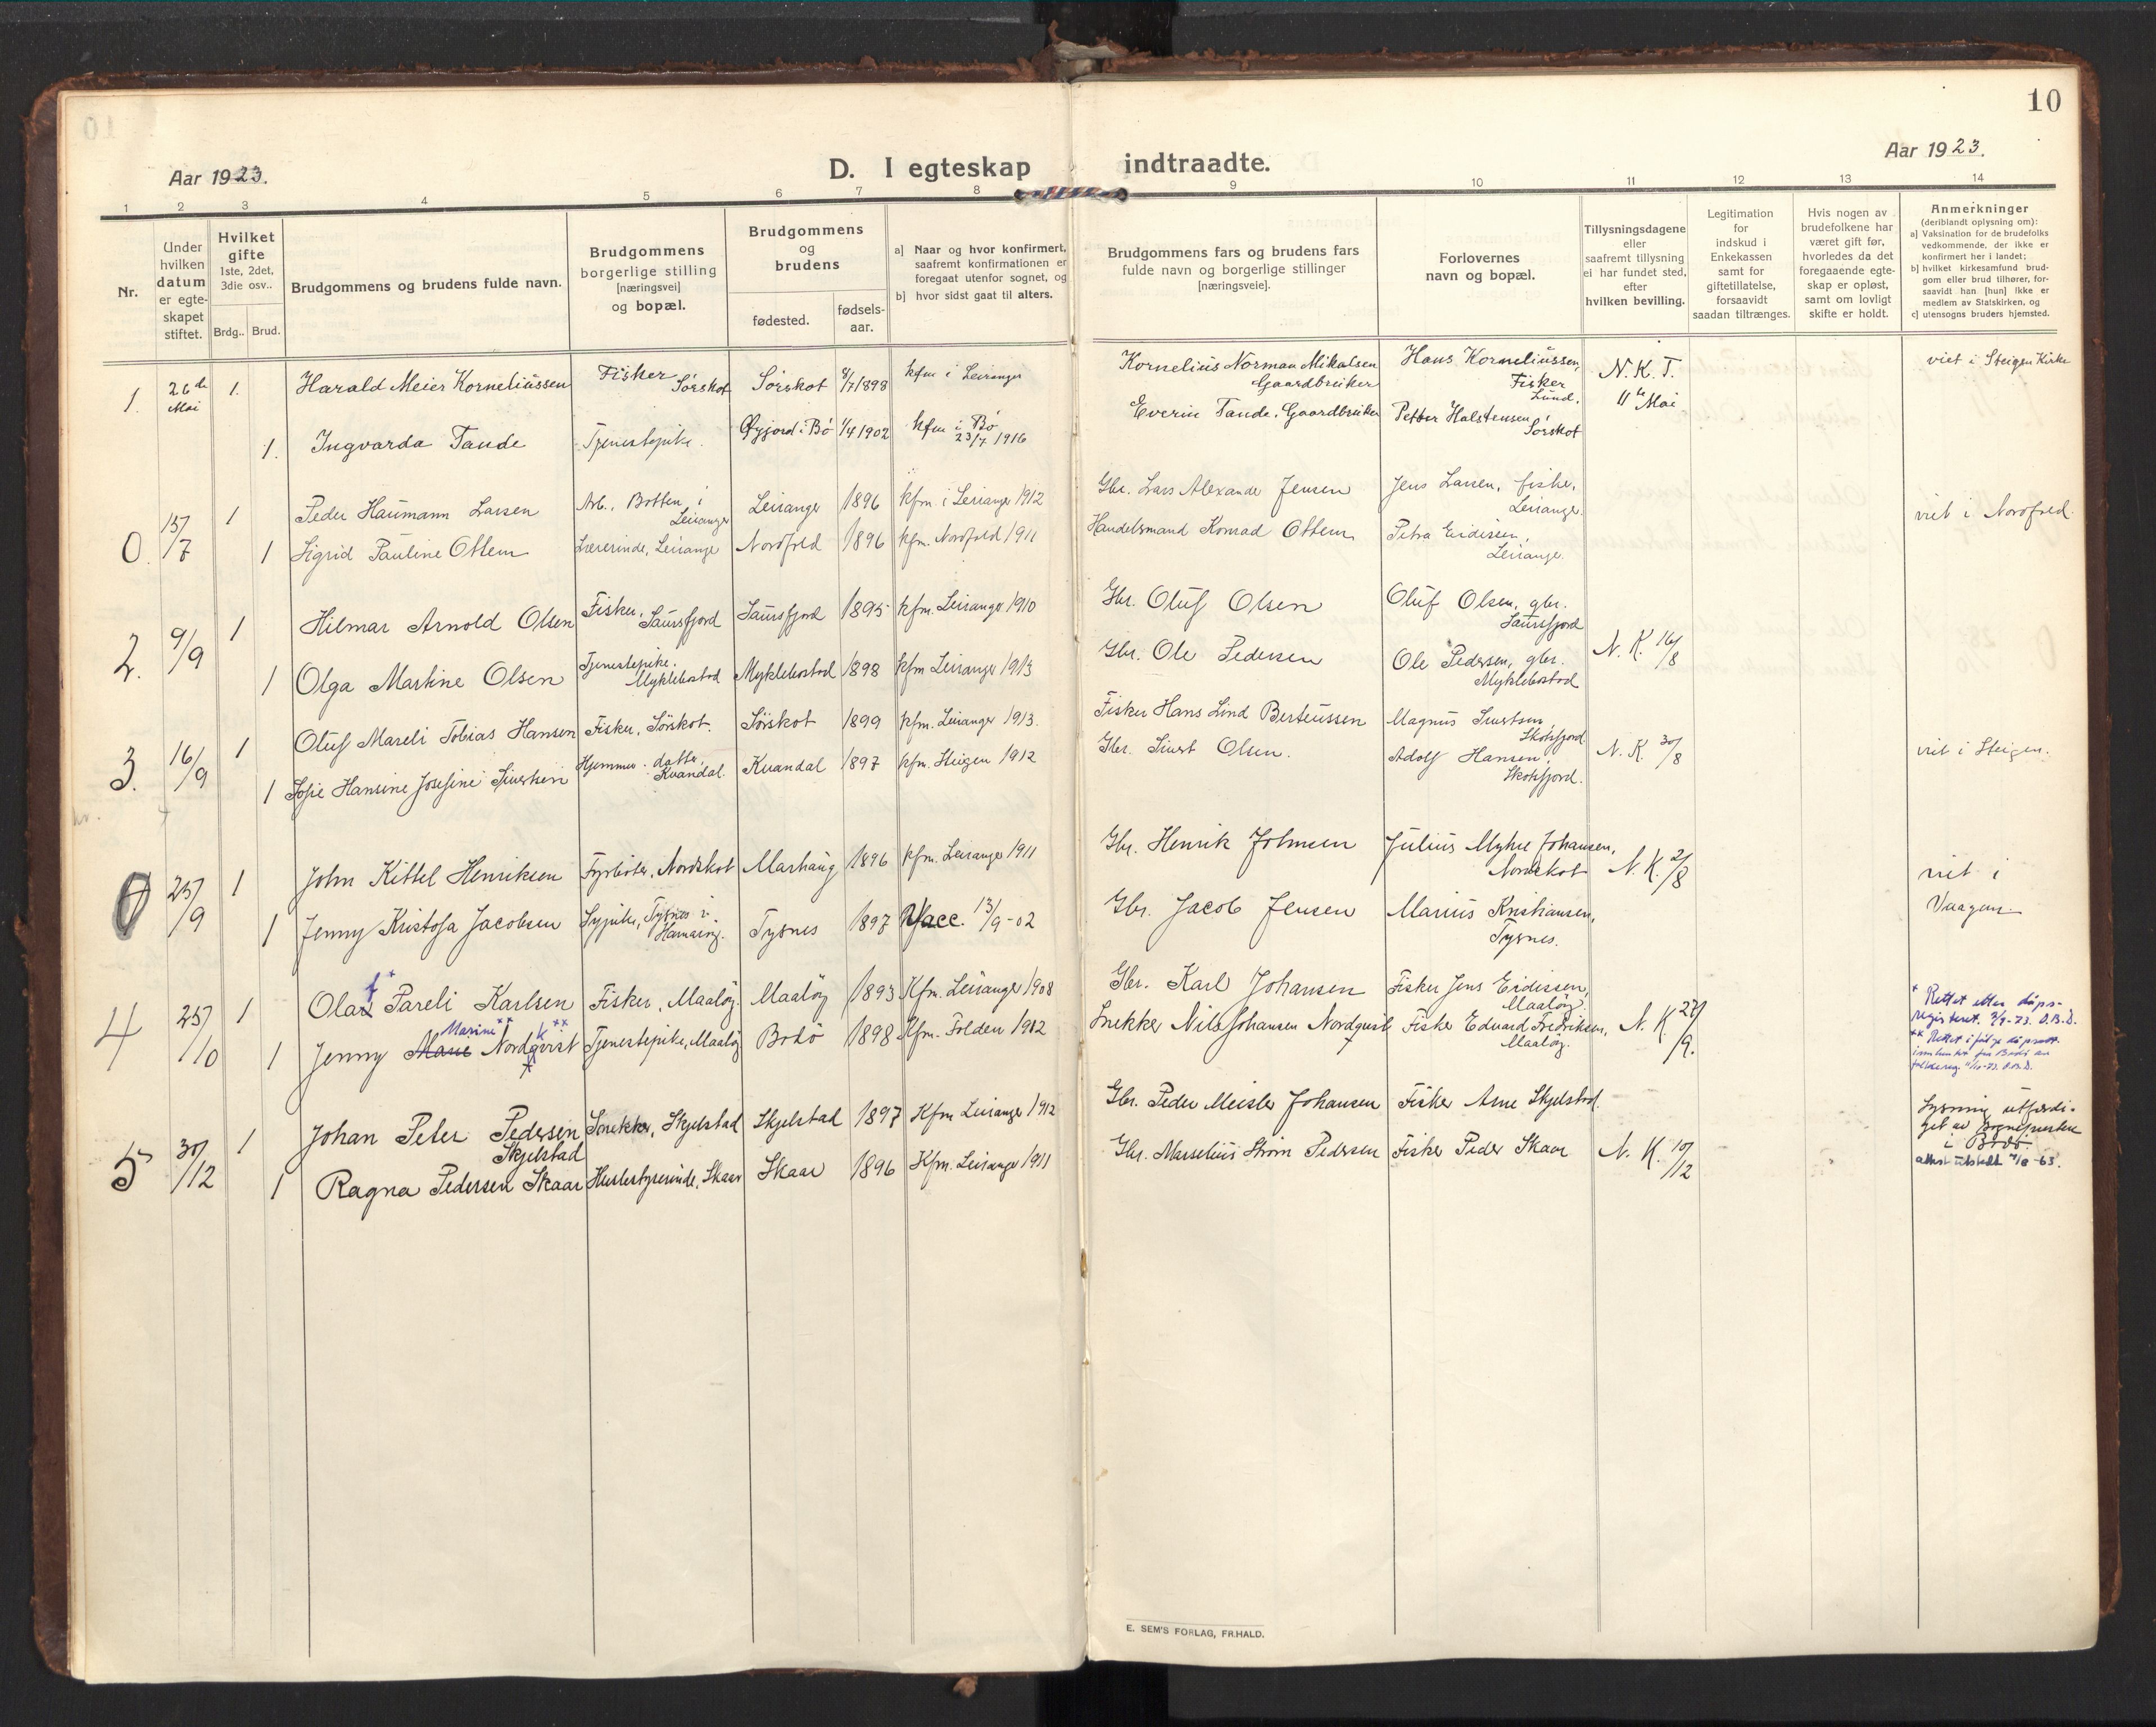 10
Aar 1923.
D. I egteskap indtraadte.
Aar 1923.
1 2 3 4 5 6 7 8 9 10 11 12 13 14
Nr.
Under
hvilken
datum
er egte-
skapet
stiftet.
Hvilket
gifte
1ste, 2det,
3die osv..
Brdg.. Brud.
Brudgommens og brudens fulde navn.
Brudgommens
borgerlige stilling
[næringsvei]
og bopæl.
Brudgommens
og
brudens
fødested.
fødsels-
aar.
a] Naar og hvor konfirmert,
saafremt konfirmationen er
foregaat utenfor sognet, og
b] hvor sidst gaat til alters.
Brudgommens fars og brudens fars
fulde navn og borgerlige stillinger
[næringsveie].
Forlovernes
navn og bopæl.
Tillysningsdagene
eller
saafremt tillysning
ei har fundet sted,
efter
hvilken bevilling.
Legitimation
for
indskud i
Enkekassen
samt for
giftetillatelse,
forsaavidt
saadan tiltrænges.
Hvis nogen av
brudefolkene har
været gift før,
hvorledes da det
foregaaende egte-
skap er opløst,
samt om lovligt
skifte er holdt.
Anmerkninger
(deriblandt oplysning om):
a] Vaksination for de brudefolks
vedkommende, der ikke er
konfirmert her i landet;
b] hvilket kirkesamfund brud-
gom eller brud tilhører, for-
saavidt han [hun] ikke er
medlem av Statskirken, og
c] utensogns bruders hjemsted.
1. 26de Mai 1. Harald Meier Korneliussen Fisker Sörskot Sörskot 8/7 1898 kfm i Leiranger Kornelius Norman Mikalsen Gaardbruker Hans Korneliussen, Fisker Lund. N. K. T. 11te Mai viet i Steigen Kirke
1. Ingvarda Tande Tjenestepike. Øyjord i Bö 1/4 1902 kfm i Bö 23/7 1916 Everin Tande, Gaardbruker Petter Halstensen Sörskot
0. 15/7 1 Peder Haumann Larsen Arb., Botten i Leiranger Leiranger 1896 kfm. i Leiranger 1912 Gbr. Lars Alexander Jensen Jens Larsen, fisker, Leiranger. viet i Nordfold.
1 Sigrid Pauline Ottem Lærerinde, Leiranger Nordfold 1896 kfm. Nordfold 1911 Handelsmand Konrad Ottem Petra Eidissen, Leiranger.
2. 9/9 1 Hilmar Arnold Olsen Fisker, Saursfjord Saursfjord 1895 kfm. Leiranger 1910 Gbr. Oluf Olsen Oluf Olsen, gbr. Saursfjord N. K. 16/8
1 Olga Martine Olsen Tjenestepike. Myklebostad Myklebostad 1898 kfm Leiranger 1913 Gbr. Ole Pedersen Ole Pedersen, gbr. Myklebostad
3. 16/9 1 Oluf Mareli Tobias Hansen Fisker, Sörskot. Sörskot 1899 kfm. Leiranger 1913. Fisker Hans Lind Berteussen Magnus Sivertsen, Skotsfjord N. K. 30/8 viet i Steigen.
1 Sofie Hansine Josefine Sivertsen Hjemmev. datter, Kvandal. Kvandal 1897 kfm. Steigen 1912 Gbr. Sivert Olsen. Adolf Hansen, Skotsfjord.
0 25/9 1 John Kittel Henriksen Fyrböter, Nordskot Marhaug 1896 kfm. Leiranger 1911 Gbr. Henrik Johnsen Julius Myhre Johansen, Nordskot N. K. 2/8 viet i Vaagan.
1 Jenny Kristofa Jacobsen Sypike, Tysnes i Hamaröy. Tysnes 1897 Vacc. 13/9-02 Gbr. Jacob Jensen Marius Kristiansen, Tysnes.
4 25/10 1 Olaf* Pareli Karlsen Fisker, Maalöy. Maalöy 1893 Kfm. Leiranger 1908 Gbr. Karl Johansen Fisker Jens Eidissen, Maalöy N. K. 27/9.
1 Jenny Marie Marine** Nordqvist k** Tjenestepike, Maalöy Bodö 1898 Kfm. Folden 1912 Snekker Nils Johansen Nordquist Fisker Edvard Fredriksen, Maalöy.
* Rettet etter dåps-
registeret. 3/9-73. O.B.D.
** Rettet i følge dåpsatt.
5 30/12 1 Johan Peter Pedersen Skjelstad Snekker, Skjelstad Skjelstad 1897 Kfm Leiranger 1912 Gbr. Peder Meisler Johansen Fisker Arne Skjelstad. N. K. 10/12
1 Ragna Pedersen Skaar Husbestyrerinde, Skaar Skaar 1896 Kfm. Leiranger 1911 Gbr. Marselius Ström Pedersen Fisker Peder Skaar
Lysning utferdi-
get av Sognepresten
i Bodö.
attest utstedt 4/8-63.
E. SEM'S FORLAG, FR.HALD.